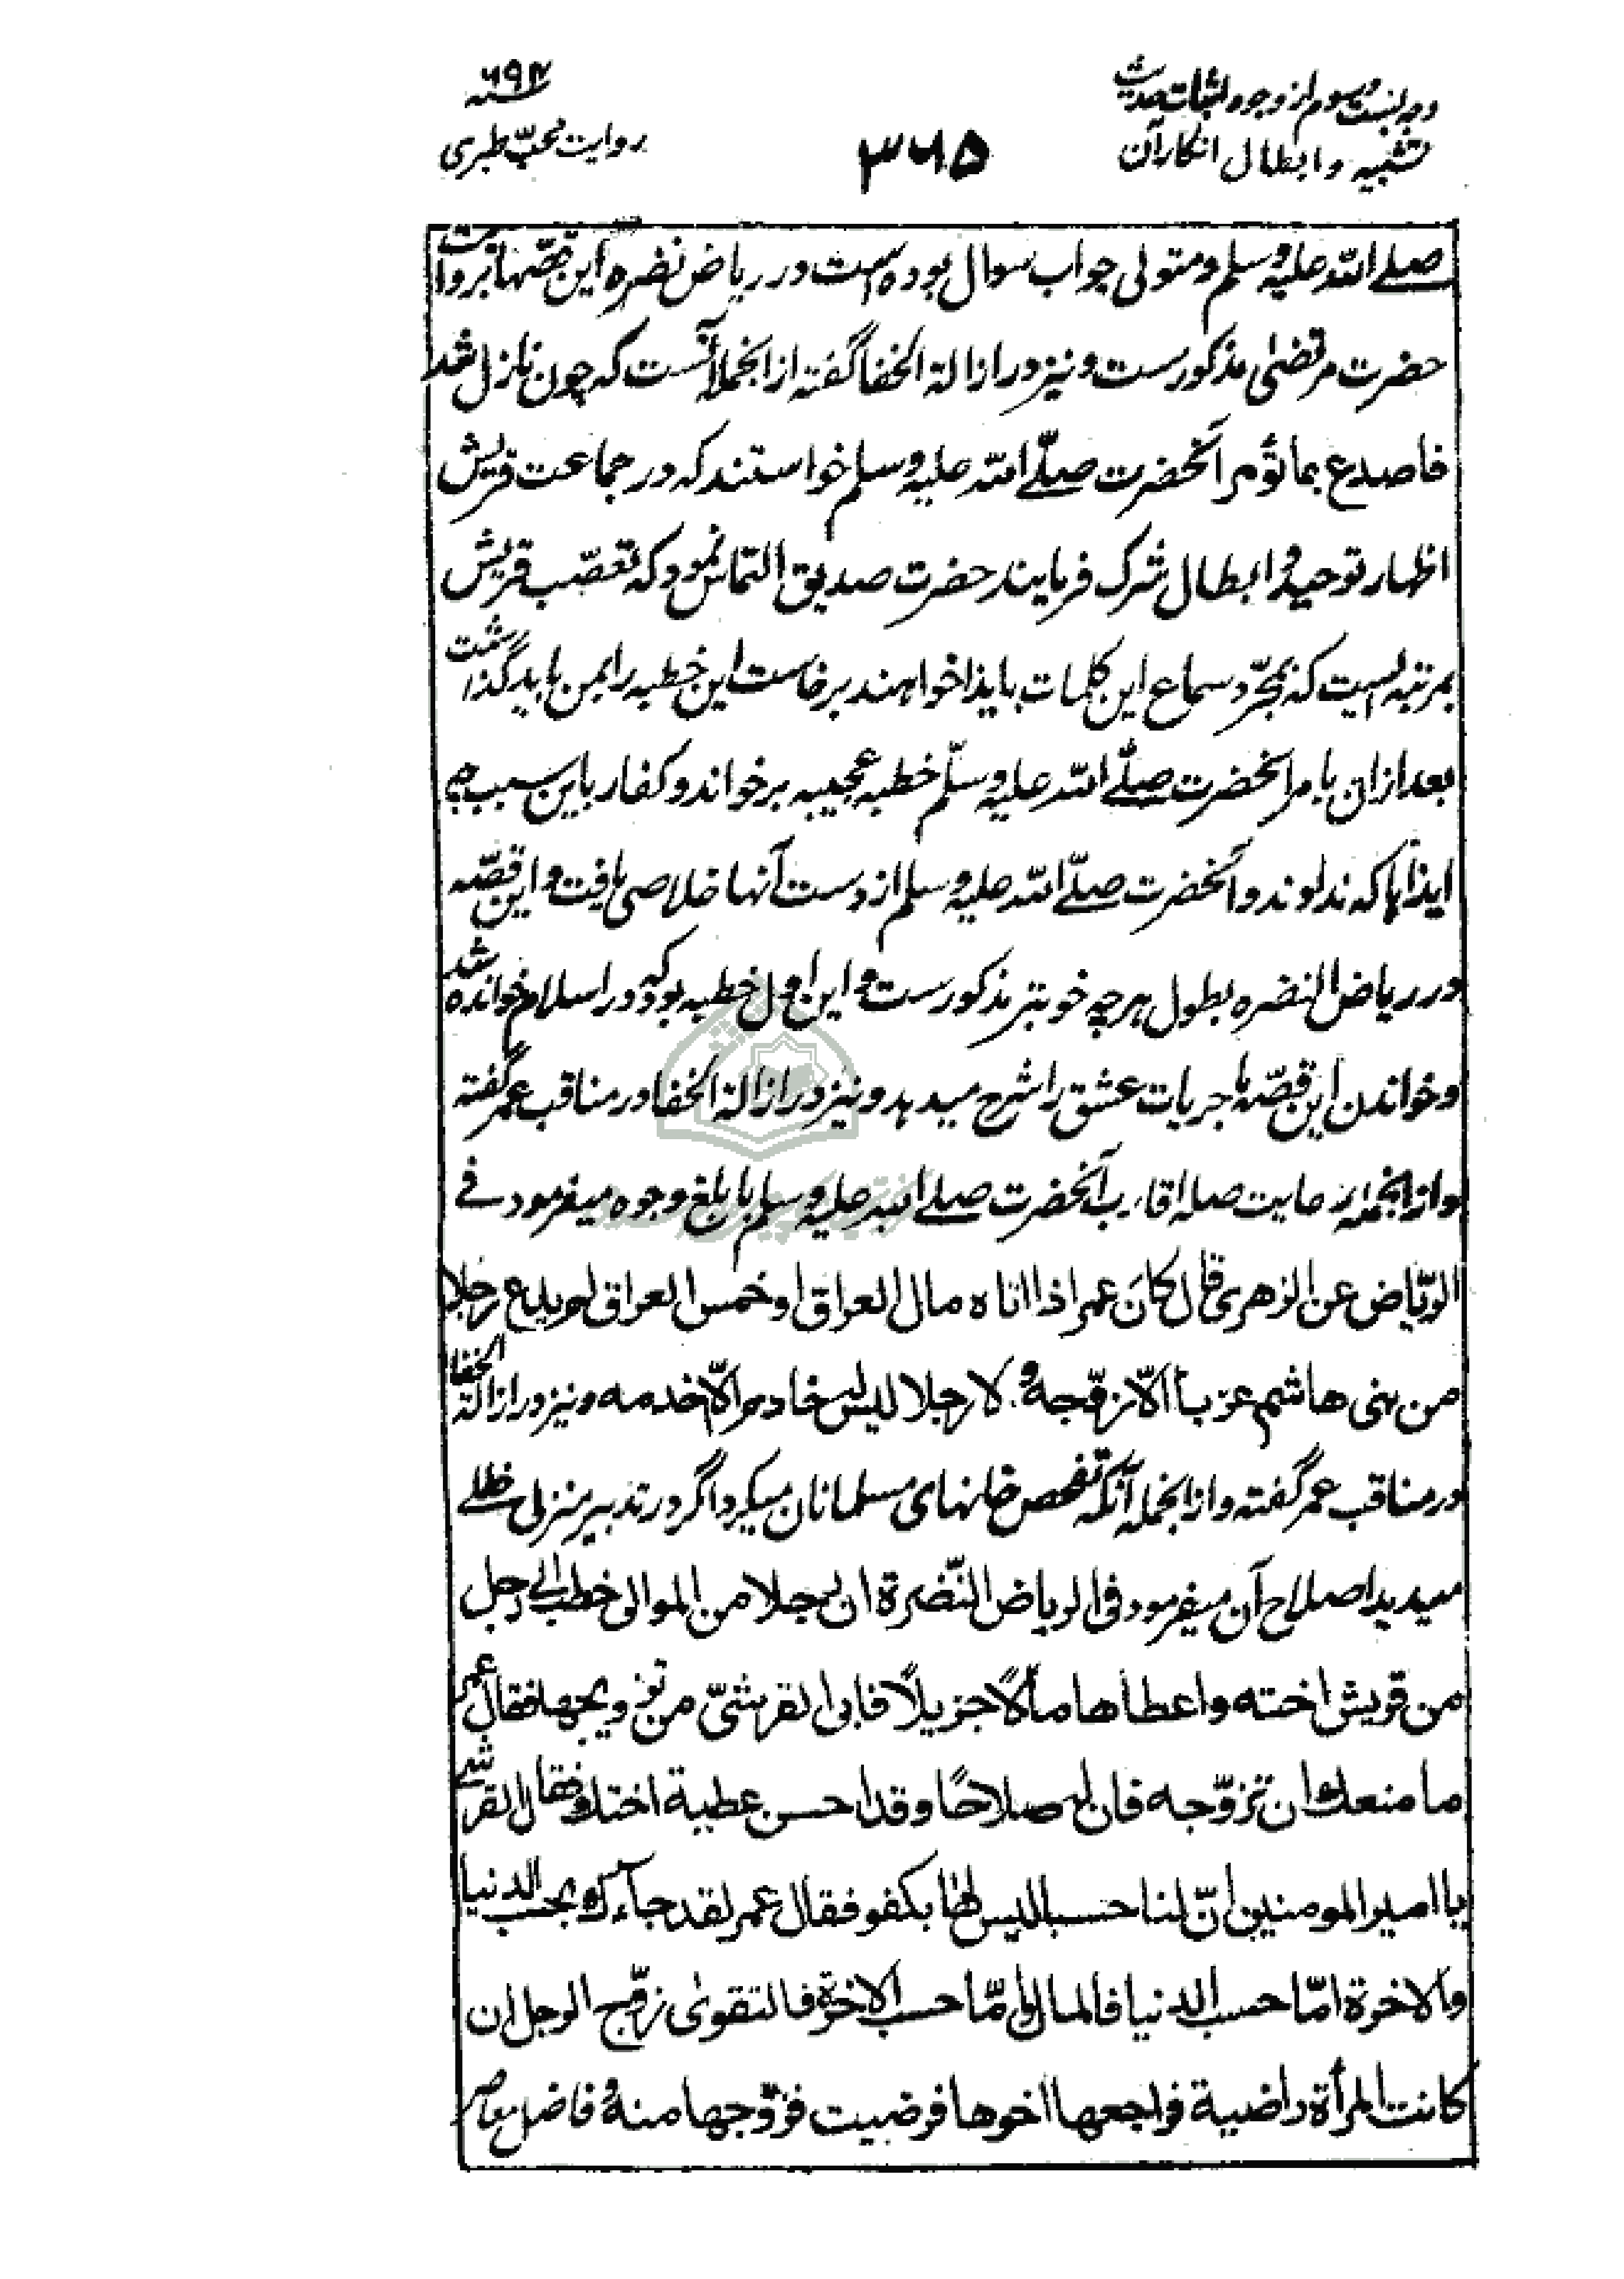 وجه بست و سوم از وجوه اثبات حدیث
تشبیه و ابطال انکار آن
۳۶۵
سنه ۶۹۴
روایت محبّ طبری
صلے اللّه علیه وسلم و متولی جواب سوال بوده است و در ریاض نضره این قصّها بروایت
حضرت مرتضیٰ مذکورست و نیز در ازالة الخفا گفته از انجمله آنست که چون نازل شد
فاصدع بما تؤمر آنحضرت صلّے اللّه علیه وسلم خواستند که در جماعت قریش
اظهار توحید و ابطال شرک فرمایند حضرت صدیق التماس نمود که تعصّب قریش
بمرتبه ایست که بمجرّد سماع این کلمات بایذا خواهند برخاست این خطبه را بمن باید گذاشت
بعد ازان بامر آنحضرت صلّے اللّه علیه وسلّم خطبه عجیبه برخواند و کفار باین سبب چه
ایذاها که ندادند و آنحضرت صلّے اللّه علیه وسلم از دست آنها خلاصی یافت و این قصّه
در ریاض النضره بطول هر چه خوبتر مذکورست و این اول خطبه بود که در اسلام خوانده شد
و خواندن این قصّه ماجریات عشق را شرح میدهد و نیز در ازالة الخفا در مناقب عمر گفته
و از انجمله رعایت صله اقارب آنحضرت صلے اللّه علیه وسلم بابلغ وجوه میفرمود فے
الریّاض عن الزهری قال کان عمر اذا اتاه مال العراق او خمس العراق لم یدع رجلا
من بنی هاشم عزبا الّا زوّجه و لا رجلا لیس له خادم الّا اخدمه و نیز در ازالة الخفا
در مناقب عمر گفته و از انجمله آنکه تفحص خانهای مسلمانان میکرد اگر در تدبیر منزلی خللے
میدید اصلاح آن میفرمود فی الریاض النّضرة ان رجلا من الموالی خطب الی رجل
من قریش اخته و اعطاها مالًا جزیلًا فابی القرشیّ من تزویجها فقال عمر
ما منعك ان تزوّجه فان له صلاحًا و قد احسن عطیة اختك فقال القرشے
یا امیر المومنین انّ لنا حسبا و لیس لها بکفو فقال عمر لقد جاءك بحسب الدنیا
و الاخرة امّا حسب الدنیا فالمال و امّا حسب الاخرة فالتقوی زوّج الرجل ان
کانت المرأة راضیة فراجعها اخوها فرضیت فزوّجها منه فاضل معاصر